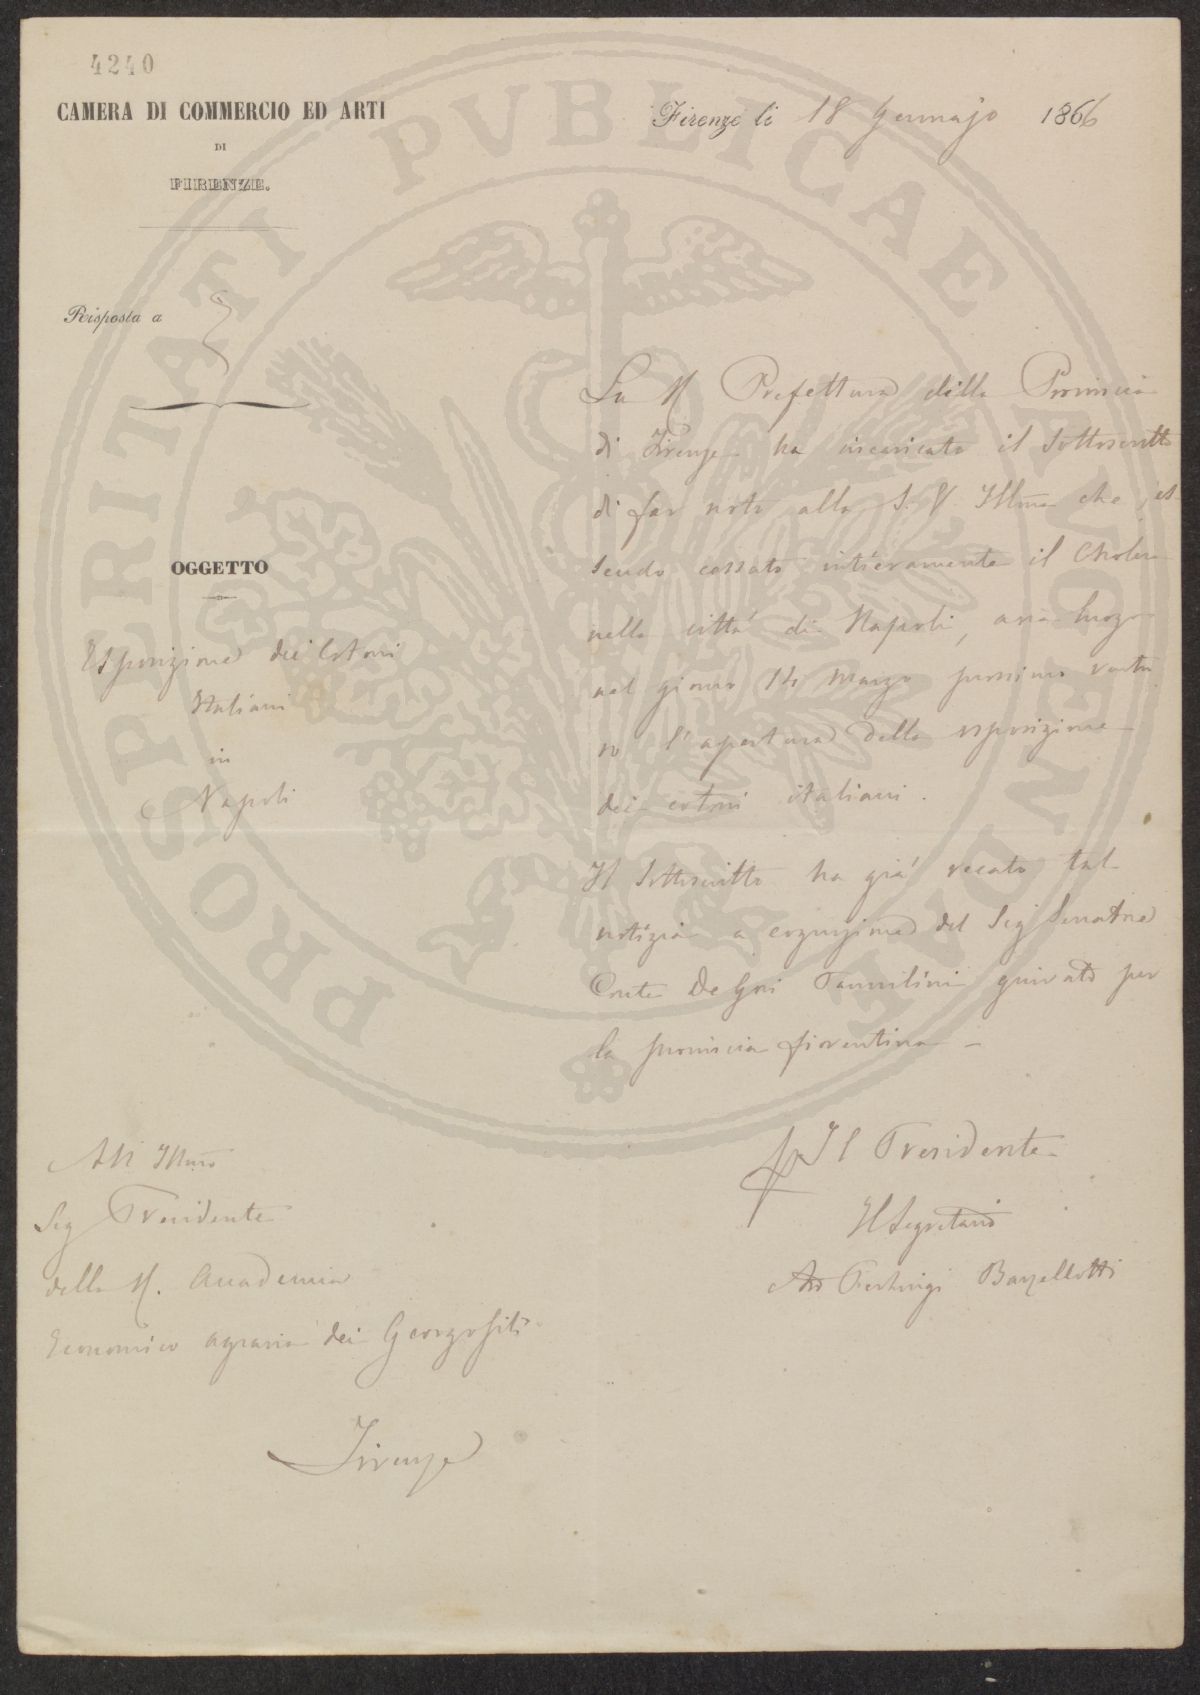 4240
CAMERA DI COMMERCIO ED ARTI
DI
FIRENZE.
Firenze li 18 Gennajo 1866
Risposta a
OGGETTO
Esposizione dei Cotoni
Italiani
in
Napoli
La R Prefettura della Provincia
di Firenze ha incaricato il Sottoscritto
di far noto alla S. V. Illma che, es-
sendo cessato intieramente il Cholera
nella città di Napoli, avrà luogo
nel giorno 14 Marzo prossimo ventu
ro l'apertura della esposizione
dei cotoni italiani.
Il Sottoscritto ha già recato tal
notizia a cognizione del Sig Senatore
Conte De Gori Pannilini giurato per
la provincia fiorentina –
Il Presidente
Il Segretario
Pierluigi Barzellotti
All Illmo
Sig Presidente
della R. Accademia
Economico agraria dei Georgofili
Firenze
PROSPERITATI PVBLICAE AVGENDAE